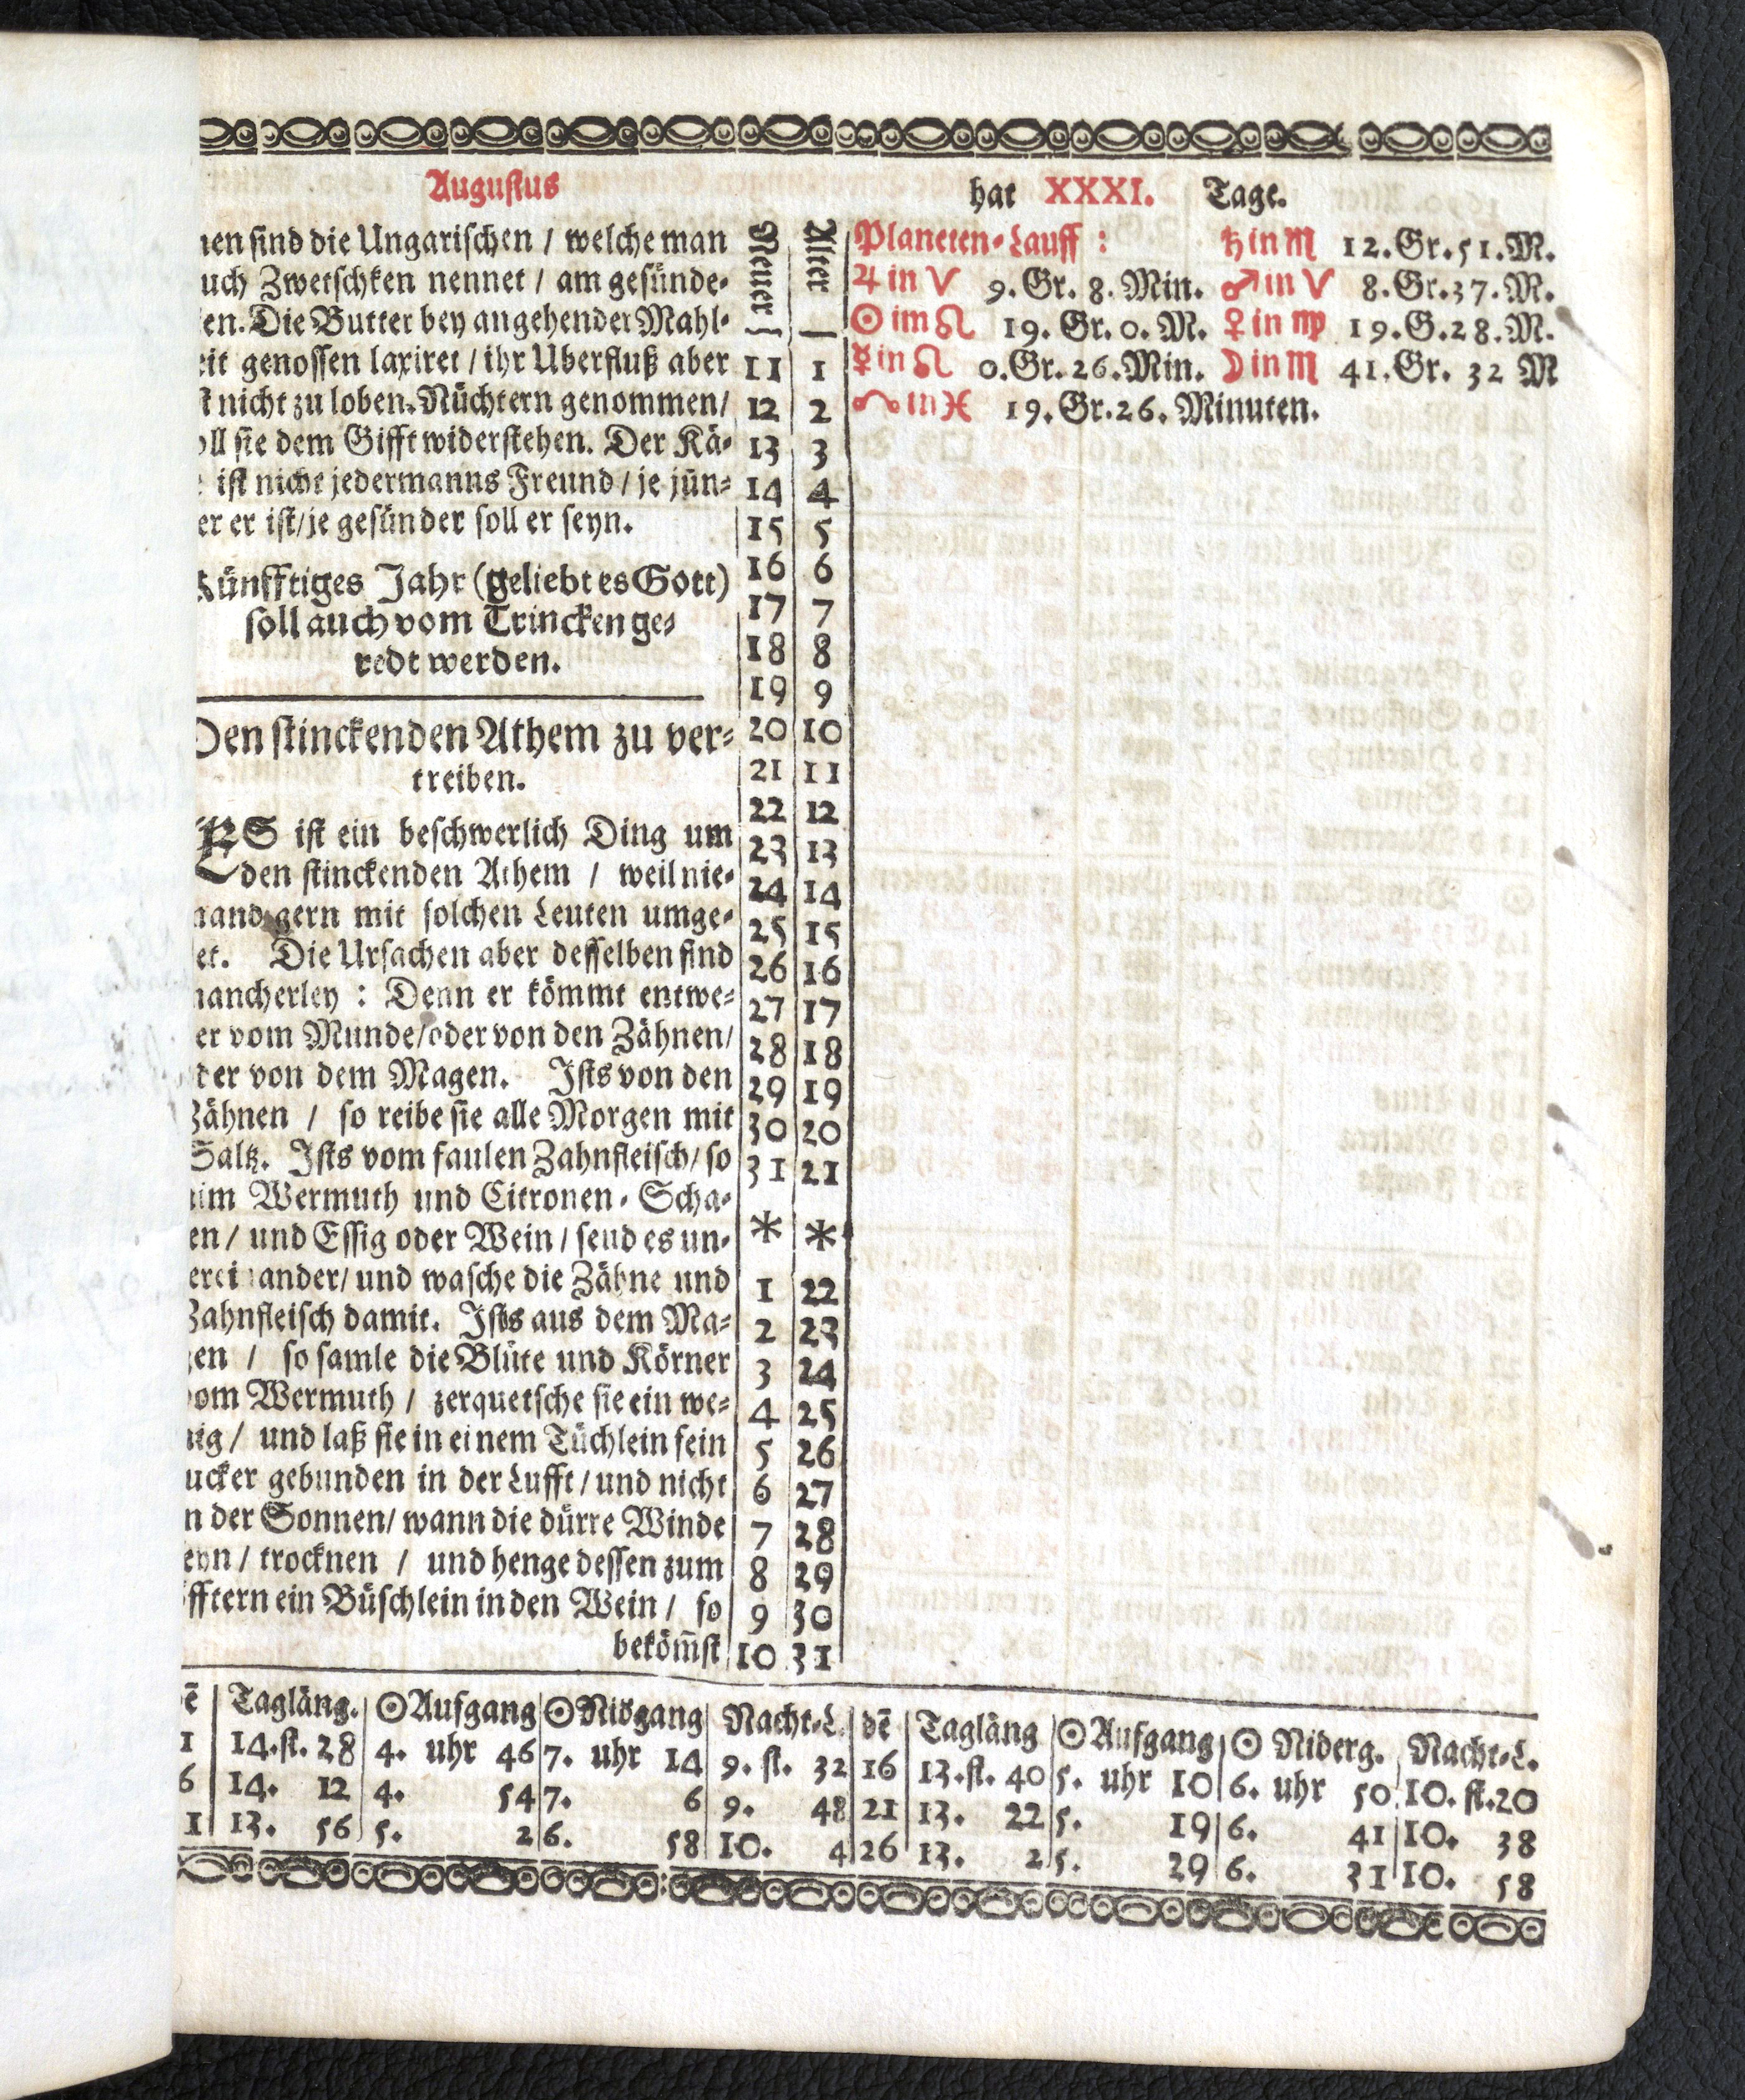 Augustus hat XXXI. Tage.
nen sind die Ungarischen / welche man
uch Zwetschken nennet / am gesünde-
en. Die Butter bey angehender Mahl-
eit genossen laxiret / ihr Uberfluß aber
t nicht zu loben. Nüchtern genommen /
oll sie dem Gifft widerstehen. Der Kä-
ist nicht jedermanns Freund / je jün-
er er ist / je gesünder soll er seyn.
Künfftiges Jahr (geliebt es Gott)
soll auch vom Trincken ge-
redt werden.
Den stinckenden Athem zu ver-
treiben.
ES ist ein beschwerlich Ding um
den stinckenden Athem / weil nie-
mand gern mit solchen Leuten umge-
et. Die Ursachen aber desselben sind
mancherley : Denn er kömmt entwe-
er vom Munde / oder von den Zähnen /
der von dem Magen. Ists von den
Zähnen / so reibe sie alle Morgen mit
Saltz. Ists vom faulen Zahnfleisch / so
nim Wermuth und Citronen-Scha-
en / und Essig oder Wein / seud es un-
ereinander / und wasche die Zähne und
Zahnfleisch damit. Ists aus dem Ma-
gen / so samle die Blüte und Körner
vom Wermuth / zerquetsche sie ein we-
nig / und laß sie in einem Tüchlein fein
ucker gebunden in der Lufft / und nicht
n der Sonnen / wann die dürre Winde
eyn / trocknen / und henge dessen zum
öfftern ein Büschlein in den Wein / so
beköm̃st
Neuer Alter
11 1
12 2
13 3
14 4
15 5
16 6
17 7
18 8
19 9
20 10
21 11
22 12
23 13
24 14
25 15
26 16
27 17
28 18
29 19
30 20
31 21
* *
1 22
2 23
3 24
4 25
5 26
6 27
7 28
8 29
9 30
10 31
Planeten-Lauff : ♄ in ♏ 12. Gr. 51. M.
♃ in ♈ 9. Gr. 8. Min. ♂ in ♈ 8. Gr. 37. M.
☉ im ♌ 19. Gr. 0. M. ♀ in ♍ 19. G. 28. M.
☿ in ♌ 0. Gr. 26. Min. ☽ in ♏ 41. Gr. 32 M
☊ in ♓ 19. Gr. 26. Minuten.
dē Tagläng. ☉ Aufgang ☉ Nidgang Nacht-L. dē Tagläng ☉ Aufgang ☉ Niderg. Nacht-L.
1 14. st. 28 4. uhr 46 7. uhr 14 9. st. 32 16 13. st. 40 5. uhr 10 6. uhr 50 10. st. 20
6 14. 12 4. 54 7. 6 9. 48 21 13. 22 5. 19 6. 41 10. 38
1 13. 56 5. 2 6. 58 10. 4 26 13. 2 5. 29 6. 31 10. 58